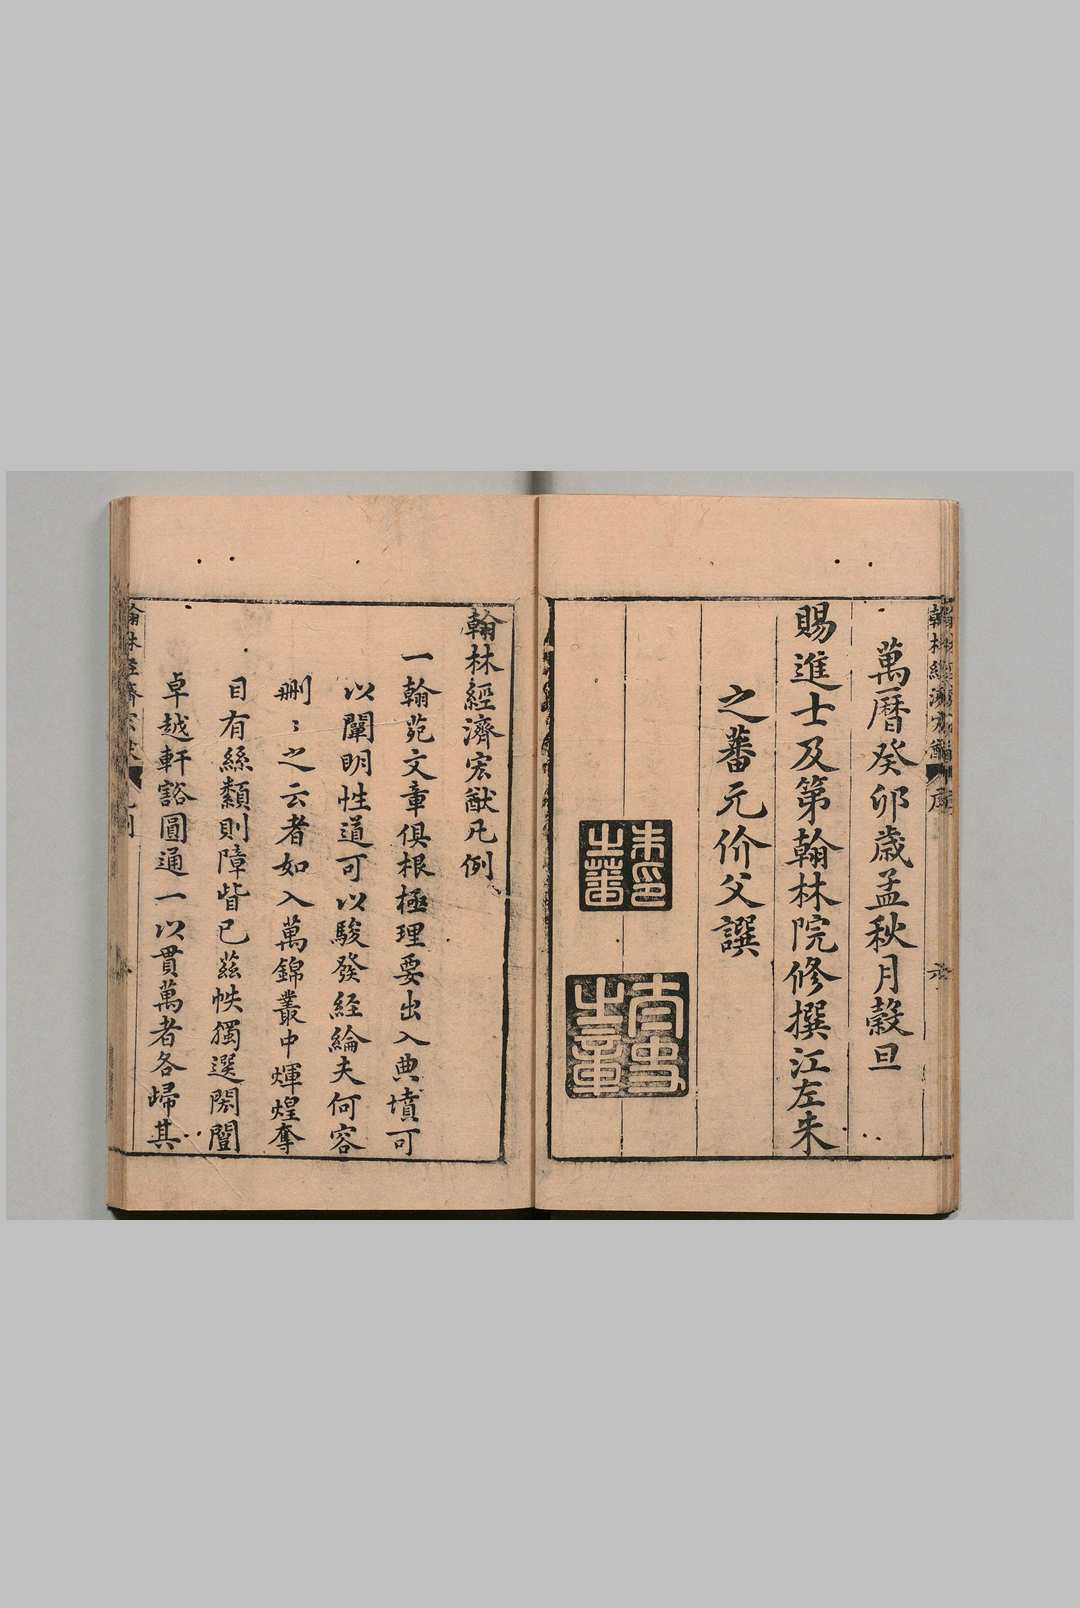 萬曆癸卯歲孟秋月穀旦
賜進士及第翰林院修撰江左朱
之蕃元价父譔
朱印之蕃
翰林經濟宏猷凡例
一翰苑文章俱根極理要出入典墳可
以闡明性道可以駿發經綸夫何容
刪刪之云者如入萬錦叢中煇煌奪
目有絲纇則障眥已茲帙獨選閎闓
卓越軒豁圓通一以貫萬者各歸其